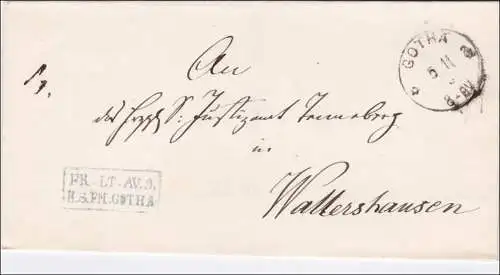 GOTHA
5 11
8-9V
An
das Herzogl. S. Justizamt Tenneberg
in
Waltershausen
FR. LT. AV. 9.
H.S.PM.GOTHA